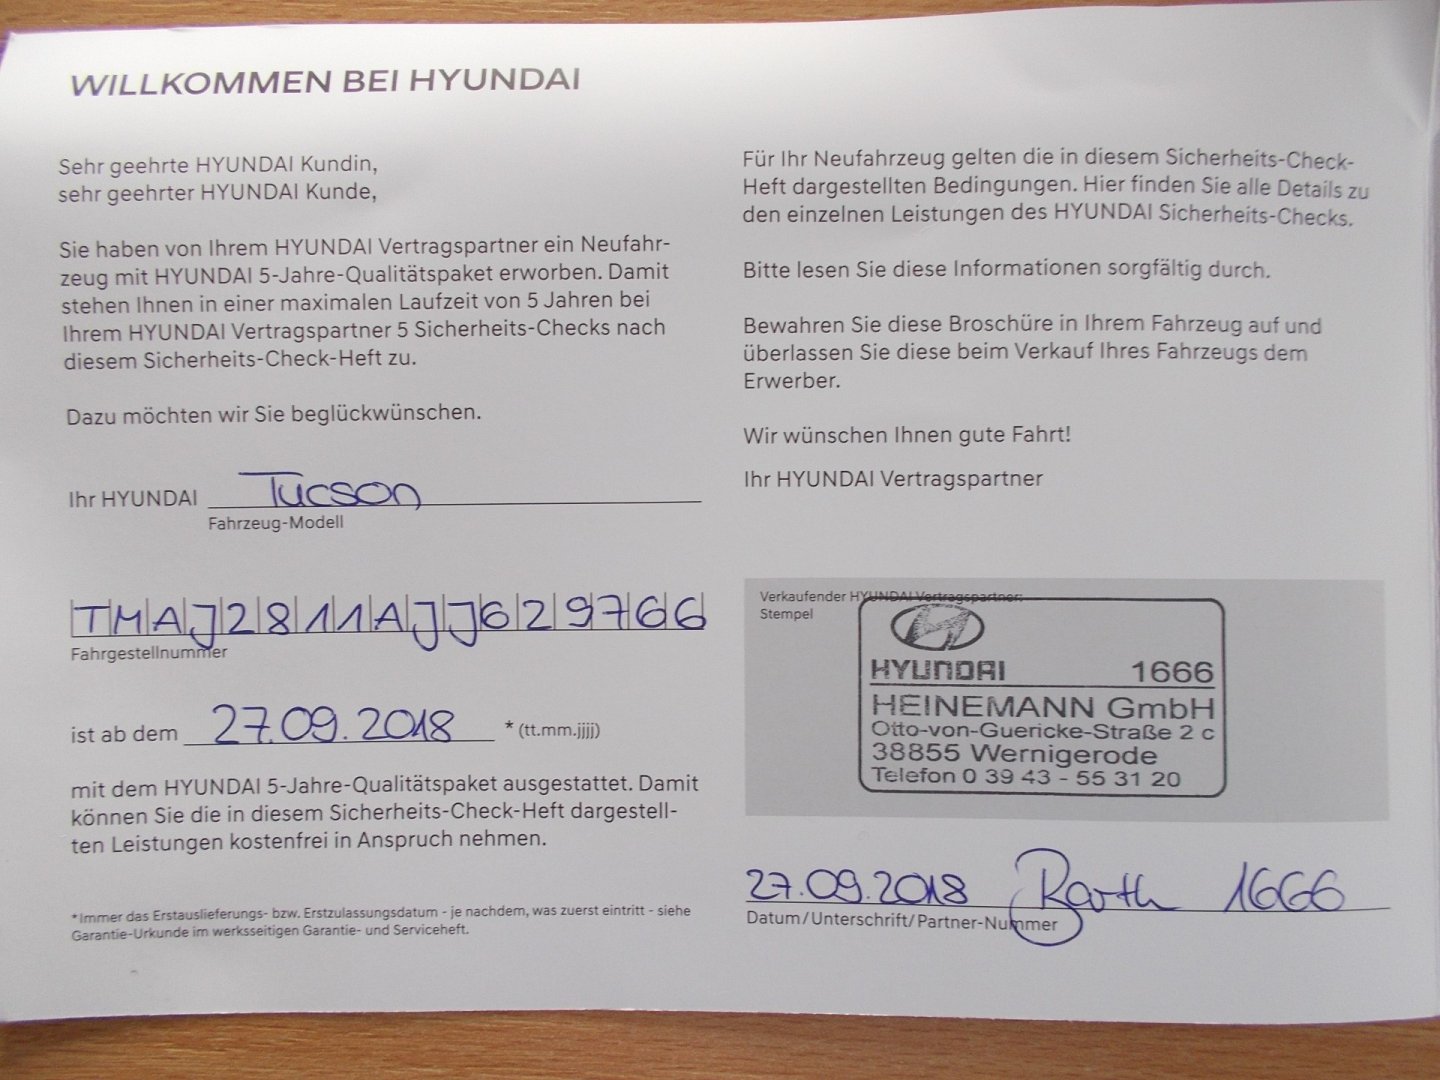 WILLKOMMEN BEI HYUNDAI
Sehr geehrte HYUNDAI Kundin,
sehr geehrter HYUNDAI Kunde,
Sie haben von Ihrem HYUNDAI Vertragspartner ein Neufahr-
zeug mit HYUNDAI 5-Jahre-Qualitätspaket erworben. Damit
stehen Ihnen in einer maximalen Laufzeit von 5 Jahren bei
Ihrem HYUNDAI Vertragspartner 5 Sicherheits-Checks nach
diesem Sicherheits-Check-Heft zu.
Dazu möchten wir Sie beglückwünschen.
Ihr HYUNDAI Tucson
Fahrzeug-Modell
TMAJ2811AJJ629766
Fahrgestellnummer
ist ab dem 27.09.2018 * (tt.mm.jjjj)
mit dem HYUNDAI 5-Jahre-Qualitätspaket ausgestattet. Damit
können Sie die in diesem Sicherheits-Check-Heft dargestell-
ten Leistungen kostenfrei in Anspruch nehmen.
*Immer das Erstauslieferungs- bzw. Erstzulassungsdatum - je nachdem, was zuerst eintritt - siehe
Garantie-Urkunde im werksseitigen Garantie- und Serviceheft.
Für Ihr Neufahrzeug gelten die in diesem Sicherheits-Check-
Heft dargestellten Bedingungen. Hier finden Sie alle Details zu
den einzelnen Leistungen des HYUNDAI Sicherheits-Checks.
Bitte lesen Sie diese Informationen sorgfältig durch.
Bewahren Sie diese Broschüre in Ihrem Fahrzeug auf und
überlassen Sie diese beim Verkauf Ihres Fahrzeugs dem
Erwerber.
Wir wünschen Ihnen gute Fahrt!
Ihr HYUNDAI Vertragspartner
Verkaufender HYUNDAI Vertragspartner:
Stempel
HYUNDAI 1666
HEINEMANN GmbH
Otto-von-Guericke-Straße 2 c
38855 Wernigerode
Telefon 0 39 43 - 55 31 20
27.09.2018 Barth 1666
Datum/Unterschrift/Partner-Nummer